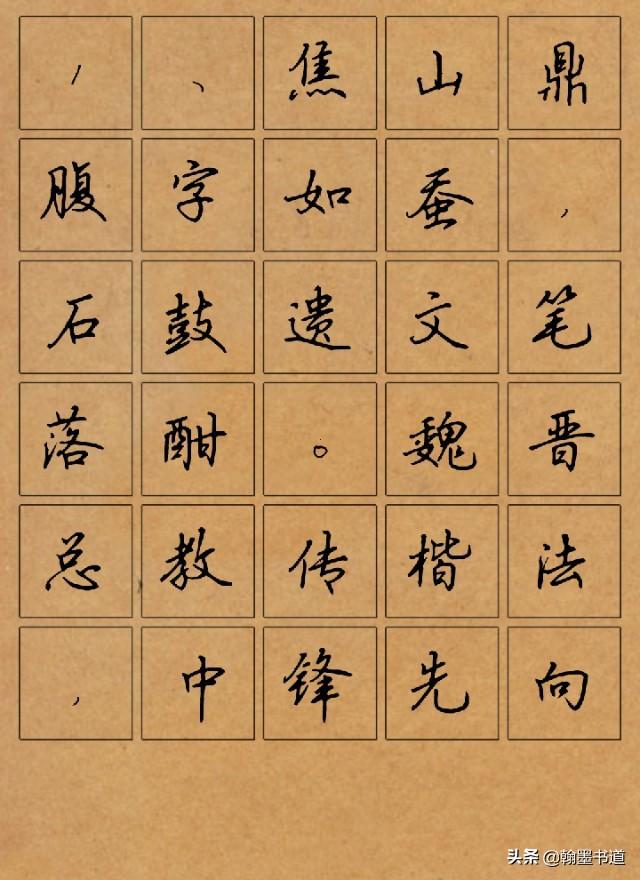 ，、焦山鼎
腹字如蚕，
石鼓遗文笔
落酣。魏晋
总教传楷法
，中锋先向
头条 @翰墨书道